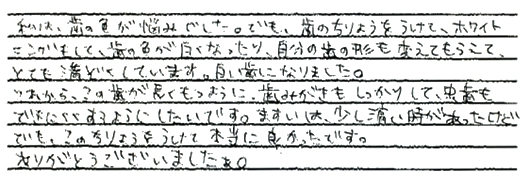 私は、歯の色が悩みでした。でも、歯のちりょうをうけて、ホワイト
して、歯の色が白くなったり、自分の歯の形も変えてもらえて、
とても満ぞくしています。白い歯になりました。
これから、この歯が長くもつように、歯みがきもしっかりして、虫歯も
するようにしたいです。ますいは、少し痛い時があったけど
でも、このちりょうをうけて本当に良かったです。
ありがとうございましたぁ。